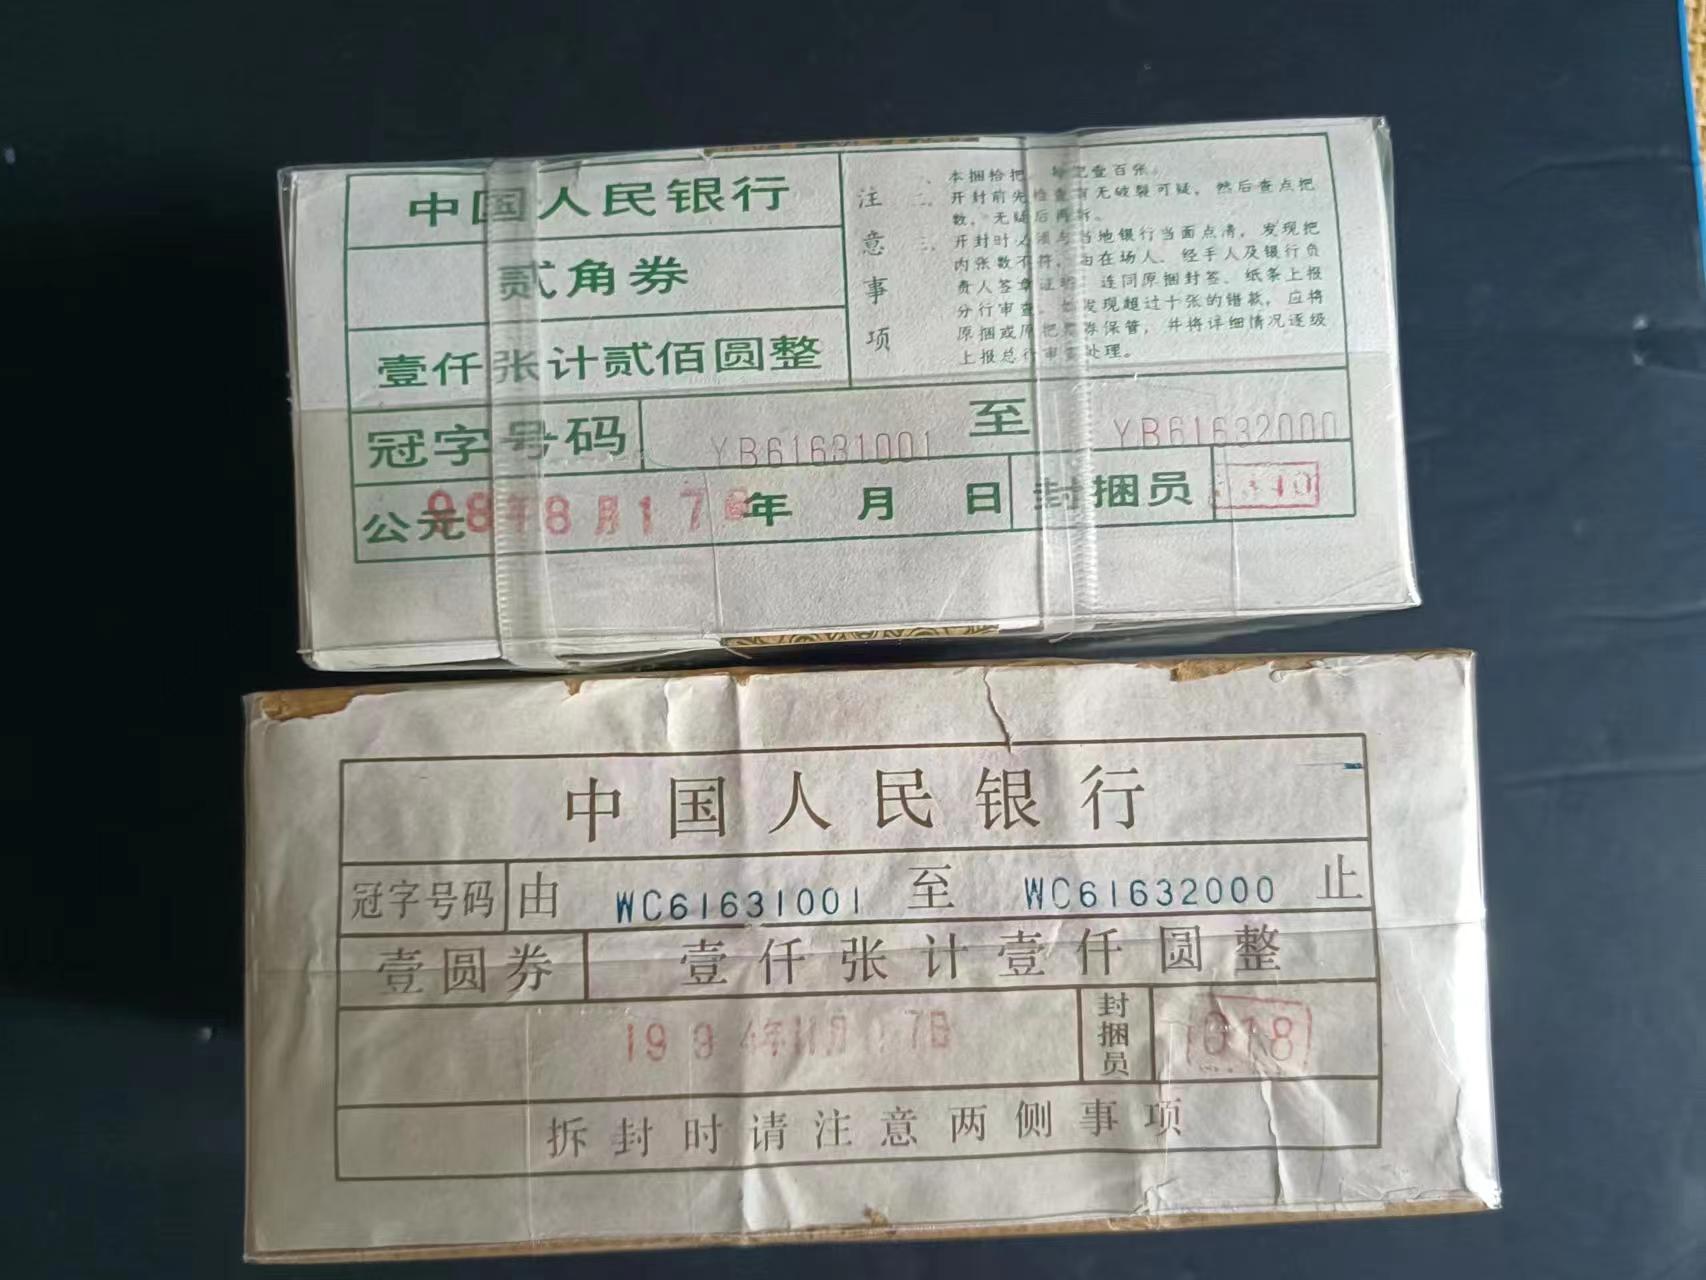 中国人民银行
贰角券
壹仟张计贰佰圆整
注意事项
一、本捆拾把，每把壹百张。
二、开封前先检查有无破裂可疑，然后查点把
数，无疑后再拆。
三、开封时必须与当地银行当面点清，发现把
内张数不符，由在场人、经手人及银行负
责人签章证明，连同原捆封签、纸条上报
分行审查。如发现超过十张的错款，应将
原捆或原把票券保管，并将详细情况逐级
上报总行审查处理。
冠字号码 YB61631001 至 YB61632000
公元 98年8月17日 年 月 日 封捆员
中国人民银行
冠字号码 由 WC61631001 至 WC61632000 止
壹圆券 壹仟张计壹仟圆整
1994年11月17日 封捆员 018
拆封时请注意两侧事项